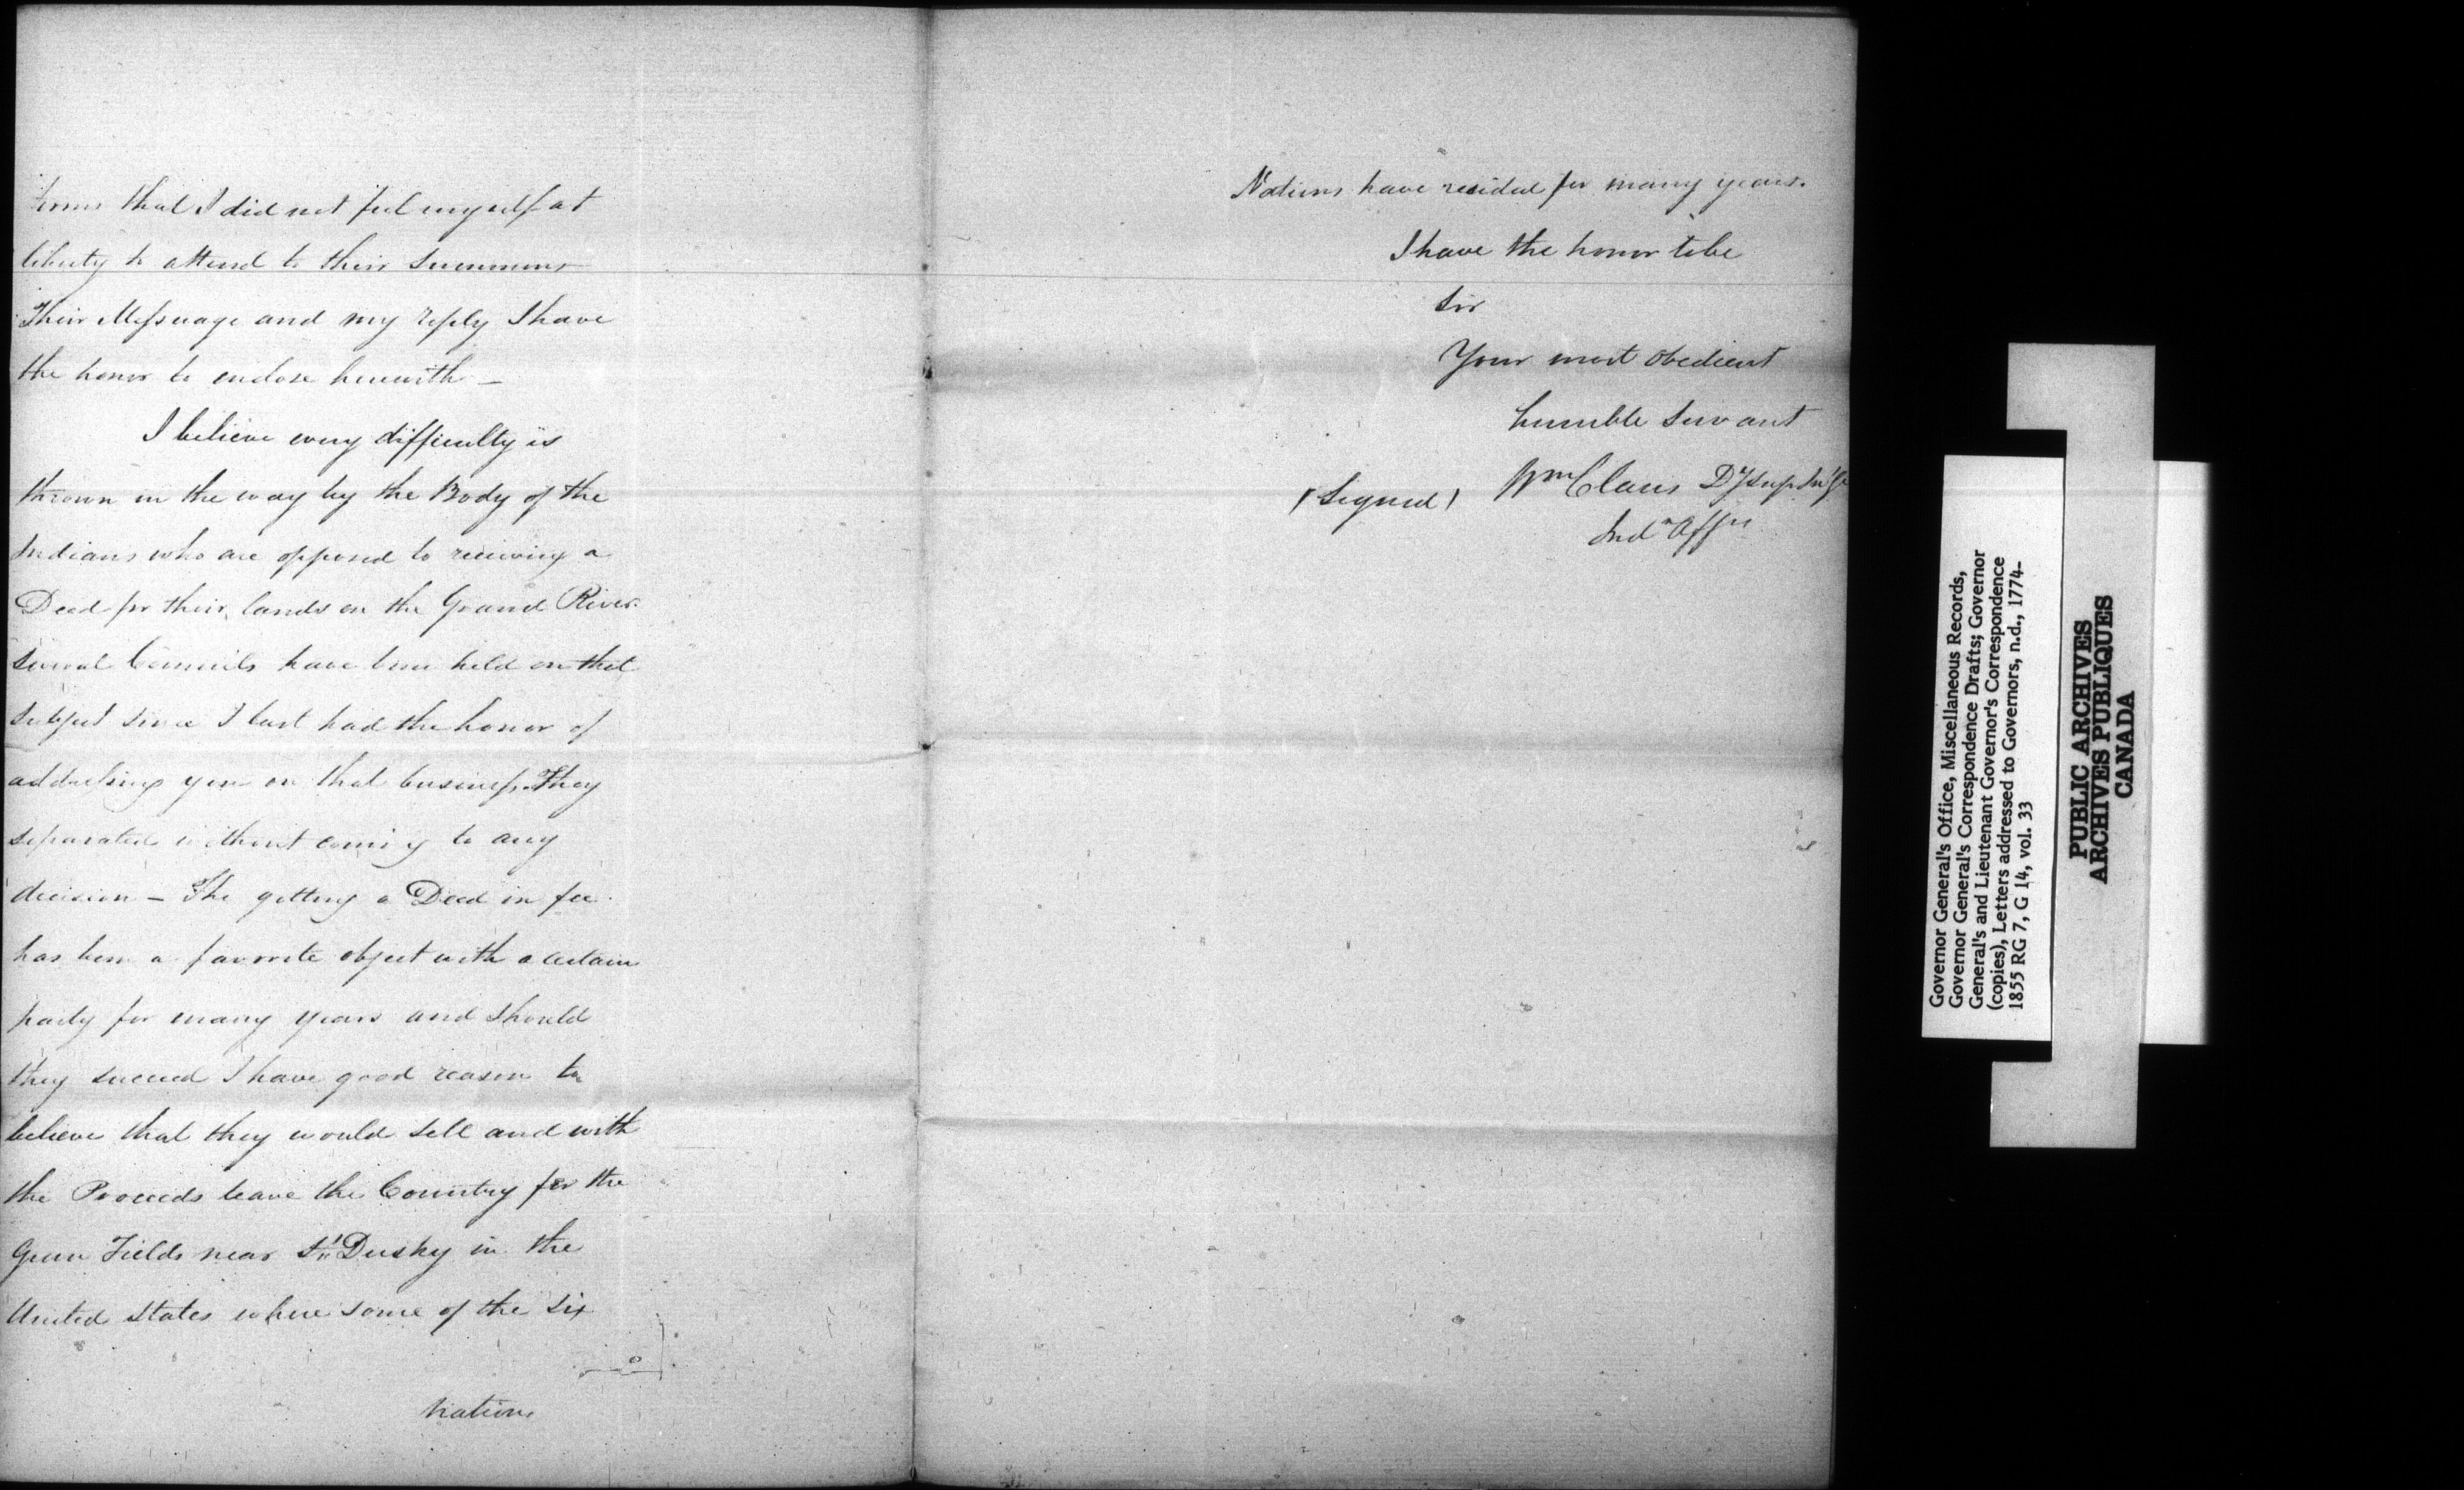 terms that I did not feel myself at
liberty to attend to their Summons
Their Messuage and my reply I have
the honor to enclose herewith —
I believe every difficulty is
thrown in the way by the Body of the
Indians who are opposed to receiving a
Deed for their lands on the Grand River.
Several Councils have been held on that
subject since I last had the honor of
addressing you on that business. They
separated without coming to any
decision — The getting a Deed in fee
has been a favorite object with a certain
party for many years and should
they succeed I have good reason to
believe that they would sell and with
the Proceeds leave the Country for the
Green Fields near Sn Dusky in the
United States where some of the Six
Nations
Nations have resided for many years.
I have the honor to be
Sir
Your most obedient
humble Servant
(Signed) Wm Claus Dy Sup In Gl
Indn Affrs
Governor General's Office, Miscellaneous Records,
Governor General's Correspondence Drafts; Governor
General's and Lieutenant Governor's Correspondence
(copies), Letters addressed to Governors, n.d., 1774-
1855 RG 7, G 14, vol. 33
PUBLIC ARCHIVES
ARCHIVES PUBLIQUES
CANADA